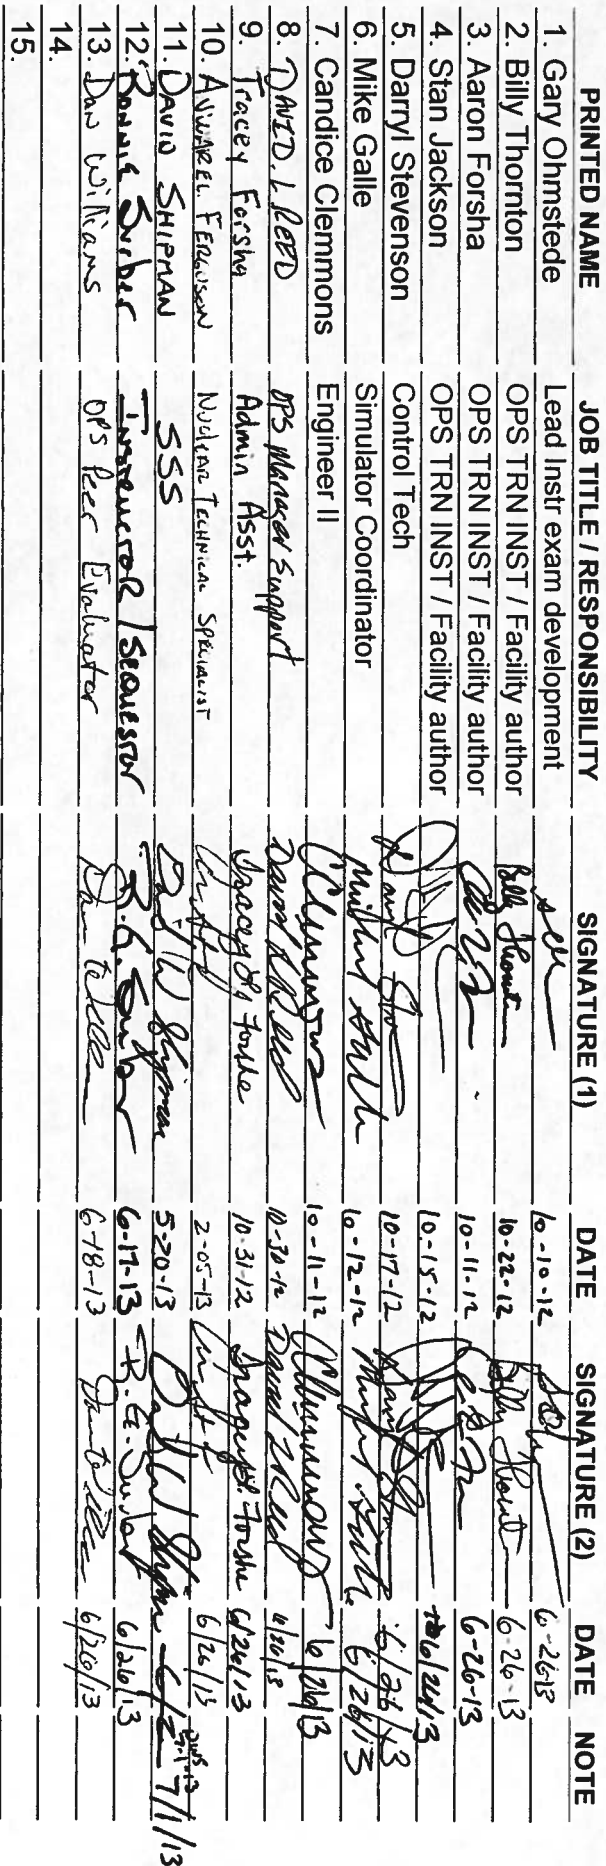 PRINTED NAME JOB TITLE / RESPONSIBILITY SIGNATURE (1) DATE SIGNATURE (2) DATE NOTE
1. Gary Ohmstede Lead Instr exam development 10-10-12 6-26-13
2. Billy Thornton OPS TRN INST / Facility author 10-22-12 6-26-13
3. Aaron Forsha OPS TRN INST / Facility author 10-11-12 6-26-13
4. Stan Jackson OPS TRN INST / Facility author 10-15-12 6/26/13
5. Darryl Stevenson Control Tech 10-17-12 6/26/13
6. Mike Galle Simulator Coordinator 10-12-12 6/26/13
7. Candice Clemmons Engineer II CClemmons 10-11-12 CClemmons 6/26/13
8. DAVID. L REED OPS Manager Support David L Reed 10-30-12 David L Reed 6/26/13
9. Tracey Forsha Admin Asst. Tracey Forsha 10-31-12 Tracey Forsha 6/26/13
10. FERGUSON NUCLEAR TECHNICAL SPECIALIST 2-05-13 6/26/13
11. DAVID SHIPMAN SSS David W Shipman 5-20-13 David W Shipman 7/1/13
12. RONNIE Surber INSTRUCTOR / SEQUESTOR R. G. Surber 6-17-13 R. G. Surber 6/26/13
13. Dan Williams OPS Peer Evaluator 6-18-13 6/26/13
14.
15.